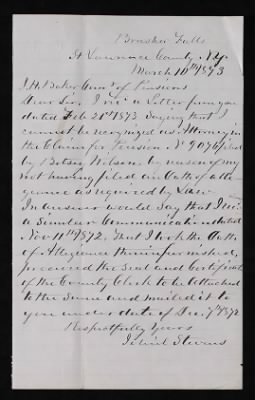 Brasher Falls
St Lawrence County N.Y.
March 10th 1873
J.H. Baker Com. of Pensions
Dear Sir, I rec'd a Letter from you
dated Feb 21st 1873, Saying that I
cannot be recognized as Attorney in
the Claim for Pension No filed
by Betsey Wilson by reason of my
not having filed an Oath of alle-
giance as required by Law
In answer would Say that I rec'd
a Similar Communication dated
Nov 11th 1872, that I took the Oath
of Allegiance therein furnished,
procured the Seal and Certificate
of the County Clerk to be Attached
to the Same and mailed it to
you under date of Dec 7th 1872
Respectfully Yours
Stevens